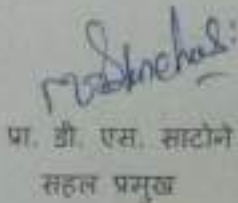 प्रा. डी. एस. साटोने
सहल प्रमुख